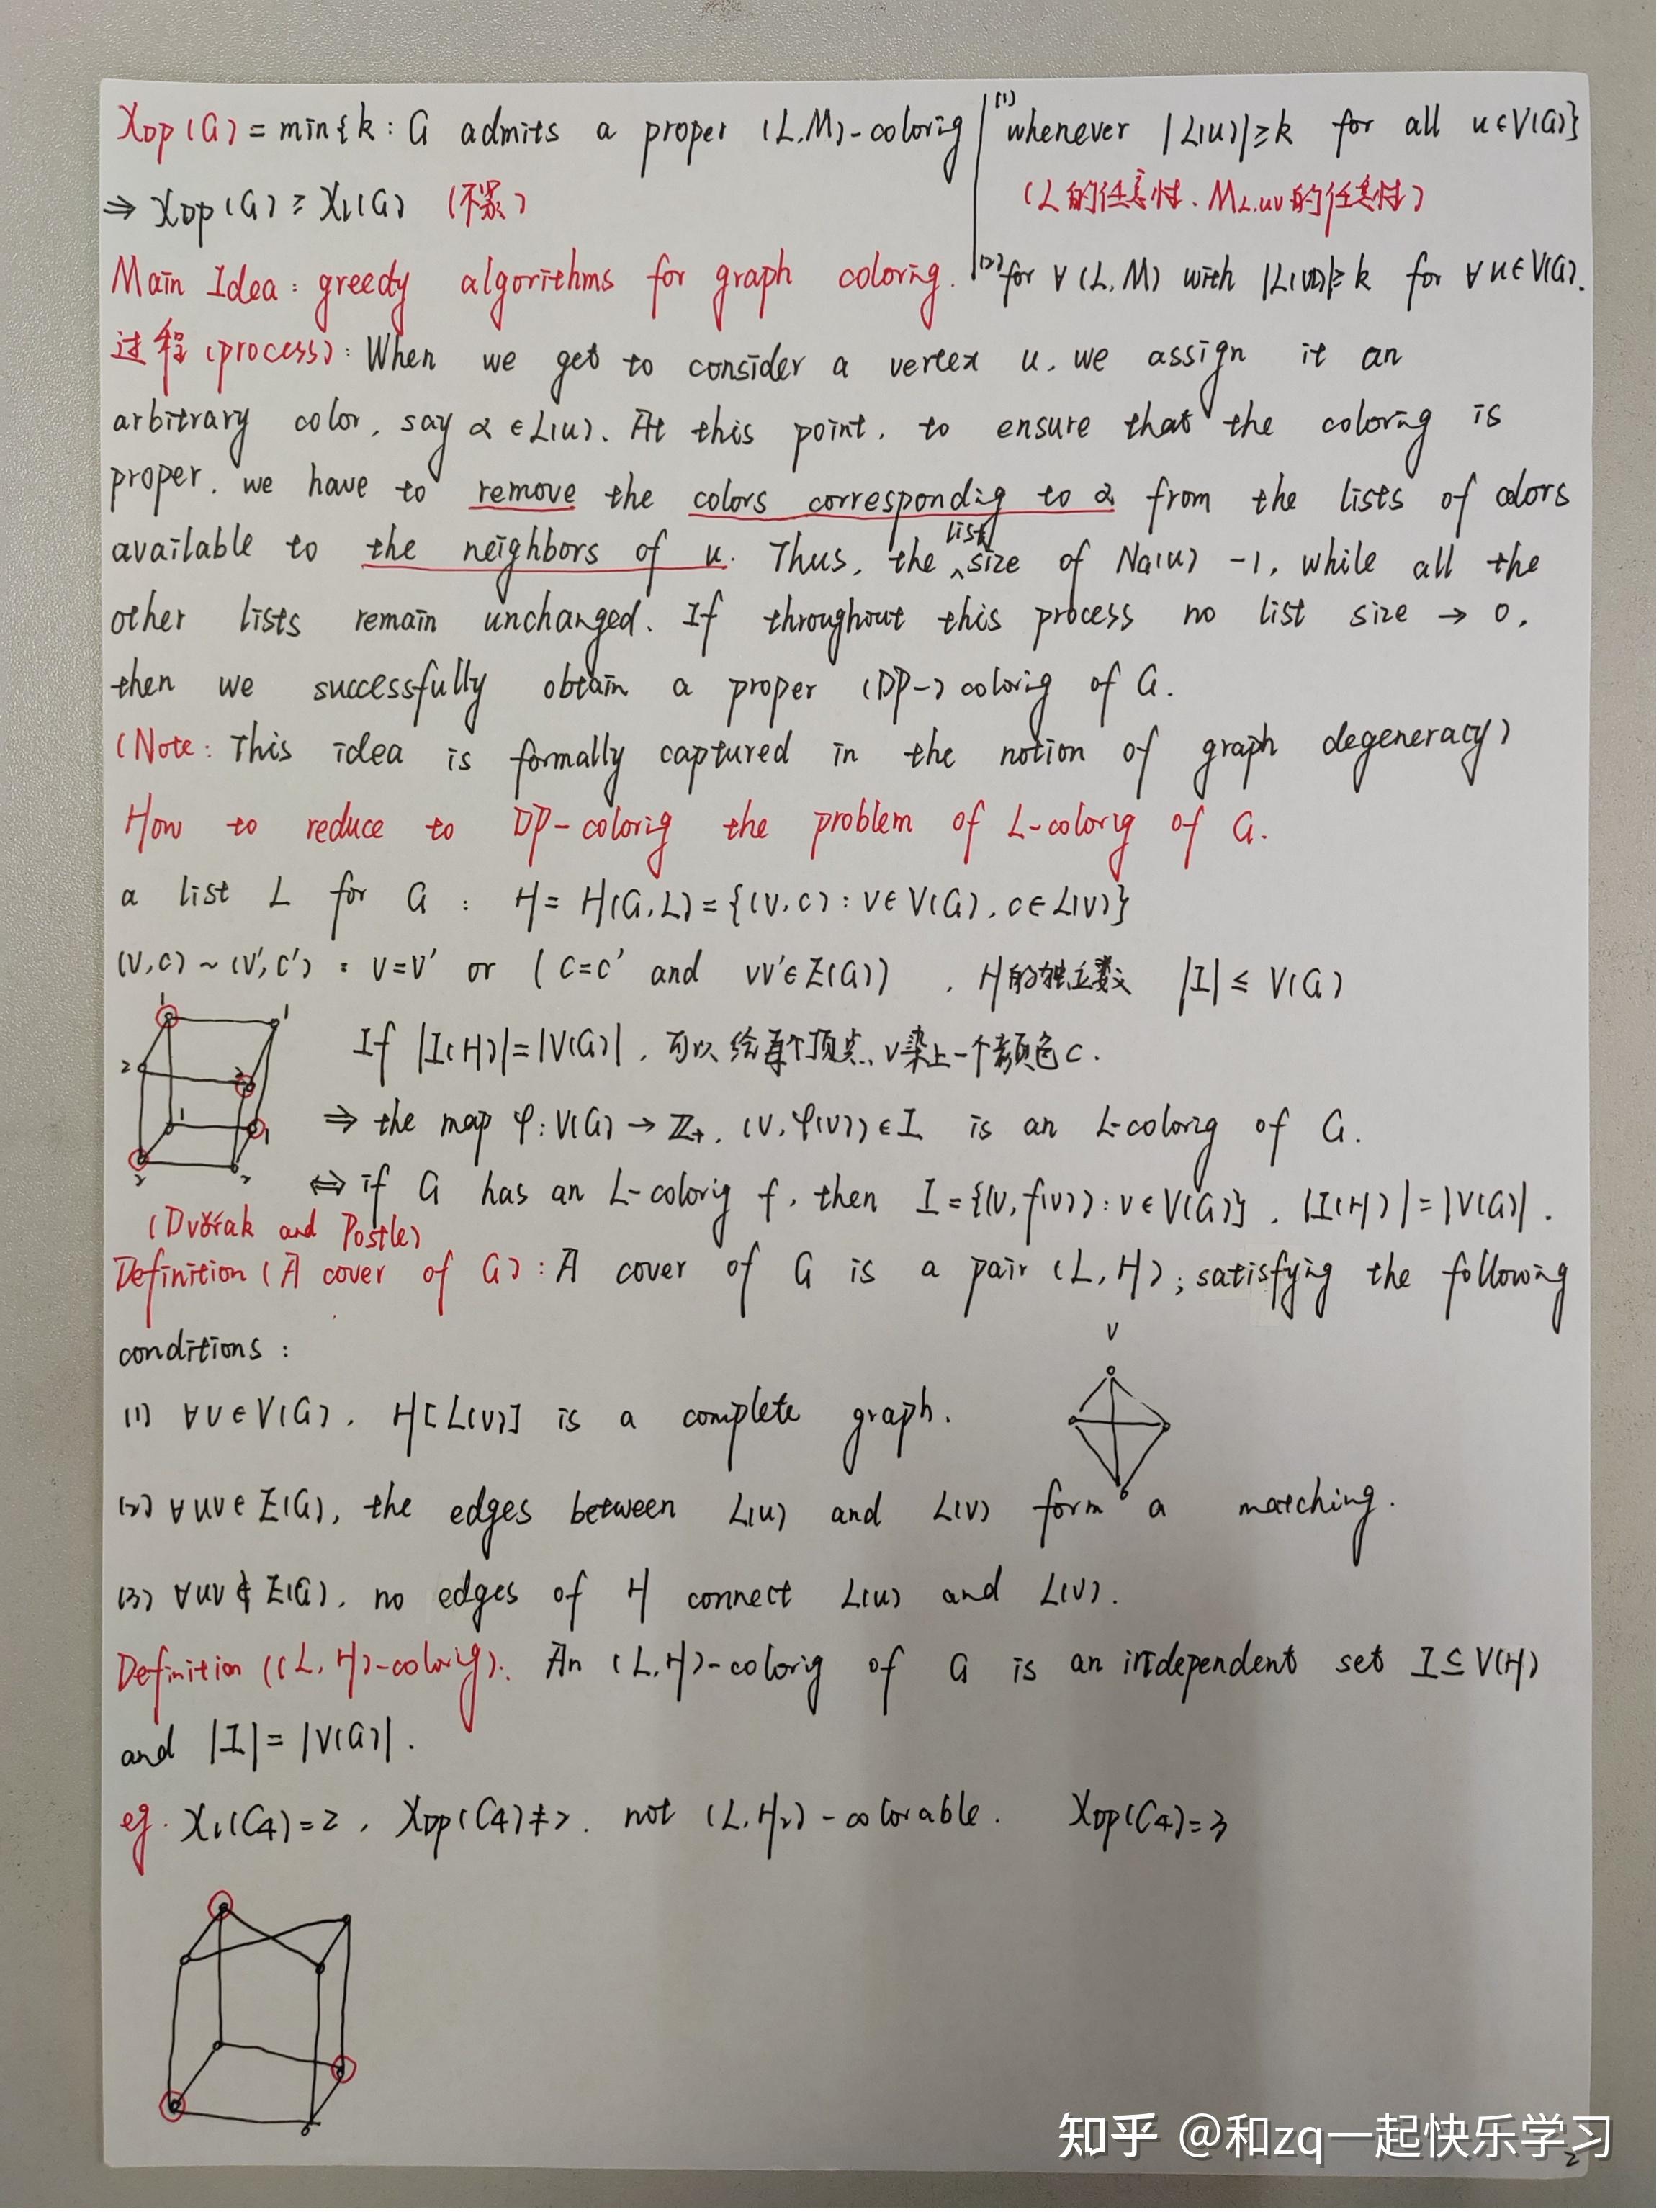 χDP(G) = min{k : G admits a proper (L,M)-colorig | (1) whenever |L(u)|≥k for all u∈V(G)}
⇒ χDP(G) ≥ χl(G) (不累) (L的任意性、ML,uv的任意性)
Main Idea: greedy algorithms for graph coloring. (2) for ∀(L,M) with |L(u)|≥k for ∀u∈V(G).
过程(process): When we get to consider a vertex u, we assign it an
arbitrary color, say α∈L(u). At this point, to ensure that the coloring is
proper, we have to remove the colors correspondig to α from the lists of colors
available to the neighbors of u. Thus, the list size of NG(u) -1, while all the
other lists remain unchanged. If throughout this process no list size → 0,
then we successfully obtain a proper (DP-) colorig of G.
(Note: This idea is formally captured in the notion of graph degeneracy)
How to reduce to DP-colorig the problem of L-colorig of G.
a list L for G : H = H(G,L) = {(v,c) : v∈V(G), c∈L(v)}
(v,c) ~ (v',c') : v=v' or (c=c' and vv'∈E(G)) , H的独立数 |I| ≤ V(G)
1 1
If |I(H)|=|V(G)|, 可以给每个顶点v染上一个颜色c.
2 2
⇒ the map φ: V(G) → Z+, (v,φ(v))∈I is an L-colorig of G.
1 1
2 2
⇔ if G has an L-colorig f, then I={(v,f(v)): v∈V(G)}, |I(H)|=|V(G)|.
(Dvořak and Postle)
Definition (A cover of G): A cover of G is a pair (L,H), satisfying the following
conditions:
v
(1) ∀v∈V(G), H[L(v)] is a complete graph.
(2) ∀uv∈E(G), the edges between L(u) and L(v) form a matching.
(3) ∀uv∉E(G), no edges of H connect L(u) and L(v).
Definition ((L,H)-colorig): An (L,H)-colorig of G is an independent set I⊆V(H)
and |I| = |V(G)|.
eg. χl(C4)=2, χDP(C4)≠2. not (L,H2)-colorable. χDP(C4)=3
知乎 @和zq一起快乐学习
2